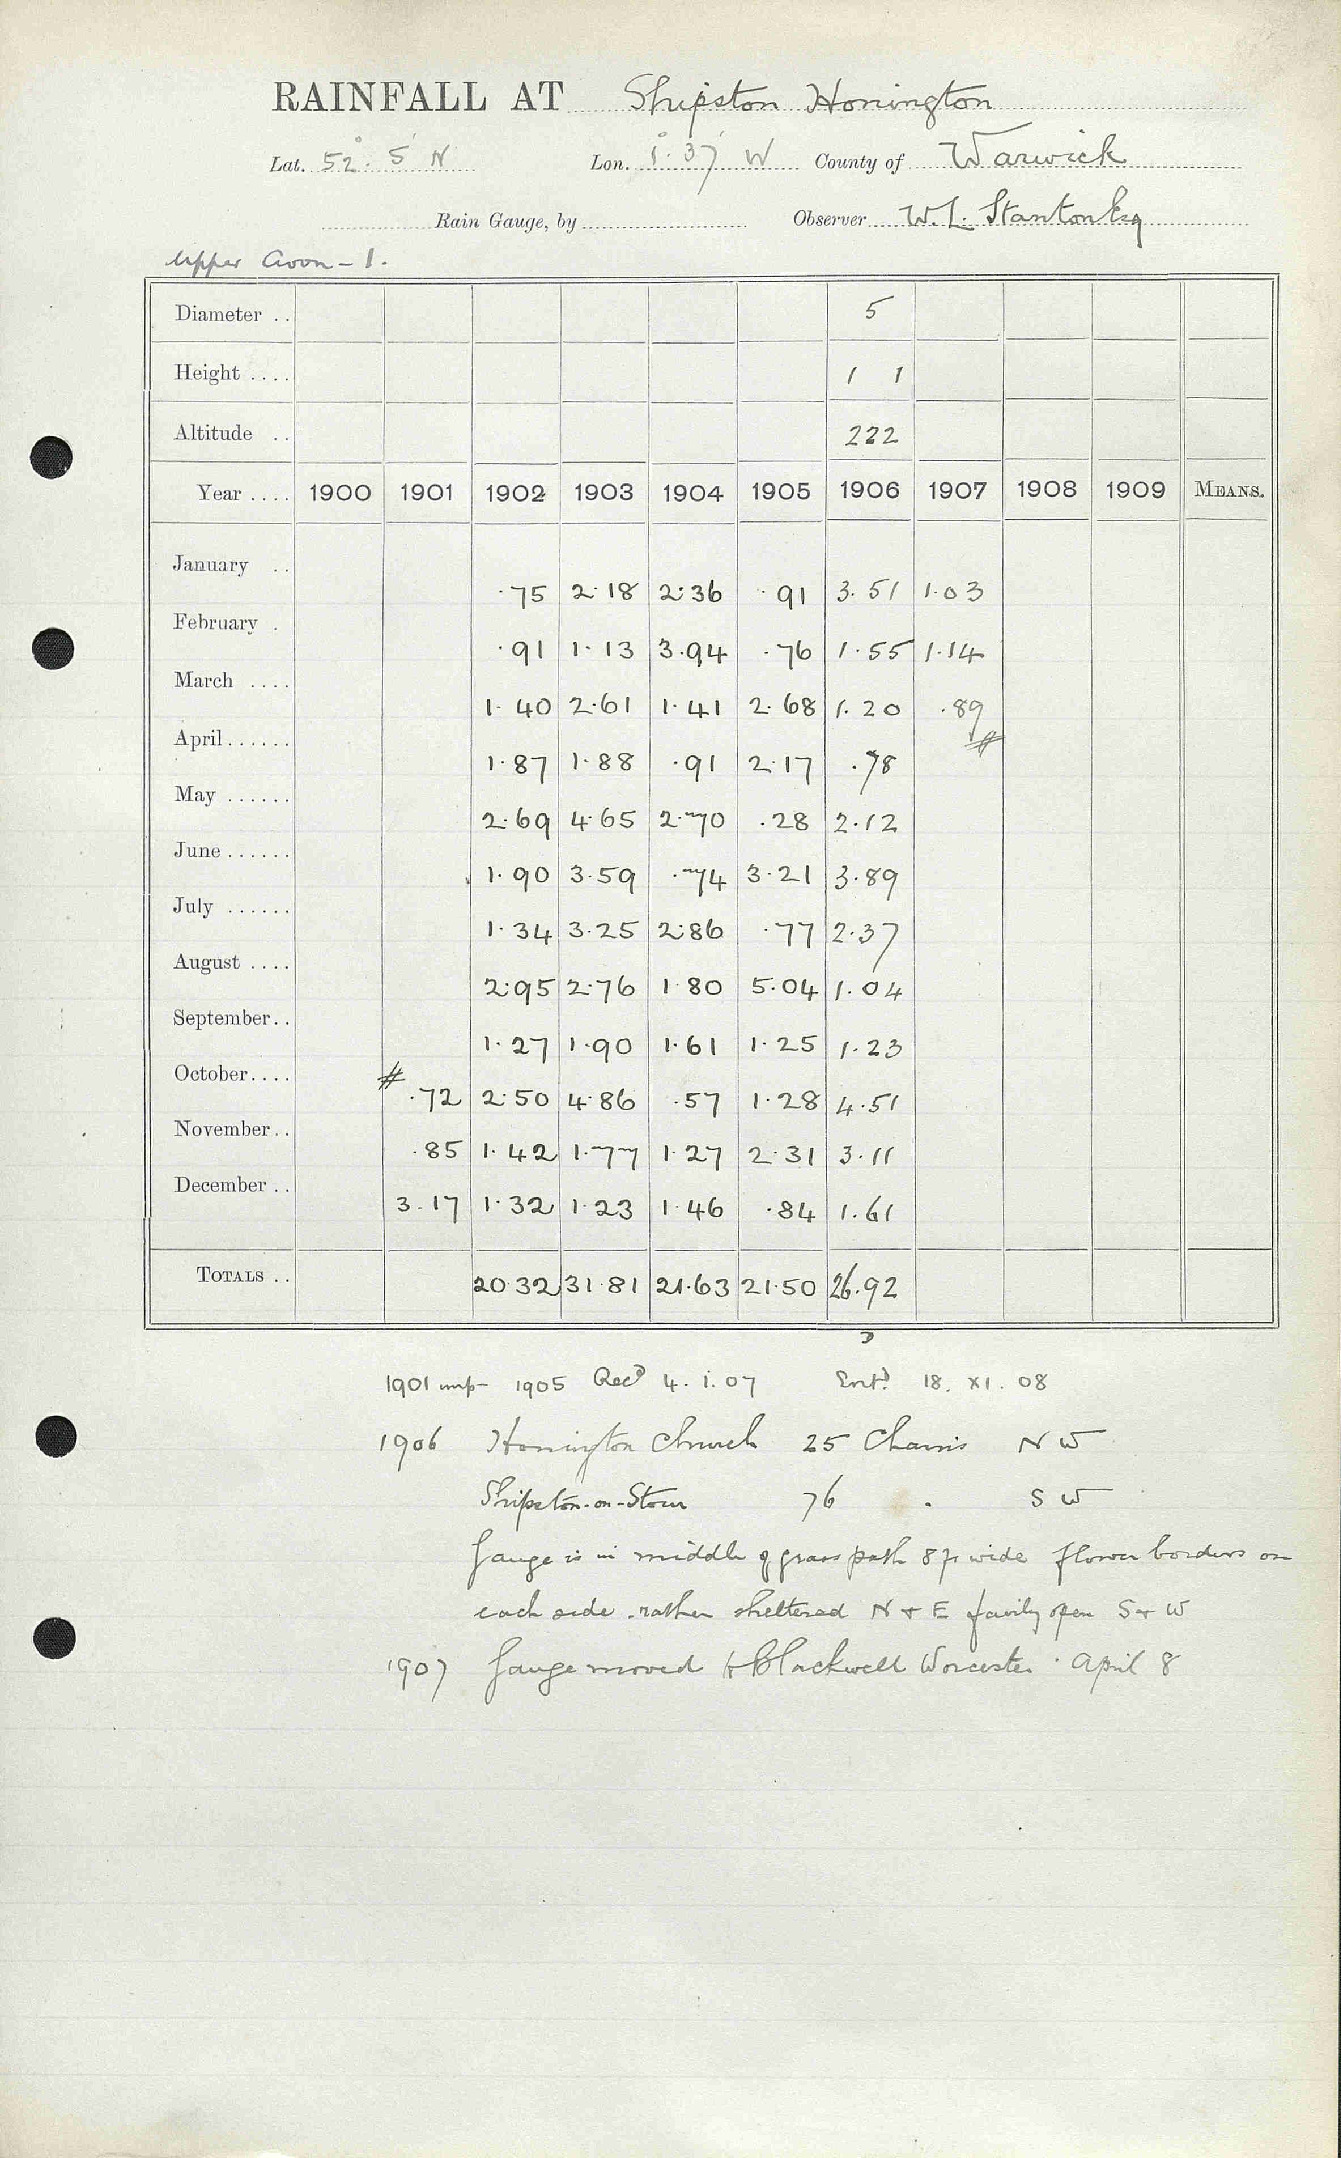 RAINFALL AT Shipston Honington
Lat. 52° 5' N Lon. 1° 37' W County of Warwick
Rain Gauge, by Observer W. L. Stanton Esq
Upper Avon - 1.
Diameter .. 5
Height .... 1 1
Altitude .. 222
Year .... 1900 1901 1902 1903 1904 1905 1906 1907 1908 1909 MEANS.
January .. .75 2.18 2.36 .91 3.51 1.03
February . .91 1.13 3.94 .76 1.55 1.14
March .... 1.40 2.61 1.41 2.68 1.20 .89
April...... 1.87 1.88 .91 2.17 .78 #
May ...... 2.69 4.65 2.70 .28 2.12
June ...... 1.90 3.59 .74 3.21 3.89
July ...... 1.34 3.25 2.86 .77 2.37
August .... 2.95 2.76 1.80 5.04 1.04
September.. 1.27 1.90 1.61 1.25 1.23
October.... # .72 2.50 4.86 .57 1.28 4.51
November.. .85 1.42 1.77 1.27 2.31 3.11
December .. 3.17 1.32 1.23 1.46 .84 1.61
TOTALS .. 20.32 31.81 21.63 21.50 26.92
1901 - 1905 Recd 4.1.07 Entd 18.XI.08
1906 Honington Church 25 Chains NW
Shipston-on-Stour 76 . SW
Gauge is in middle of grass path 8 ft wide flower borders on
each side . rather sheltered N + E fairly open S + W
1907 Gauge moved to Blackwell Worcester . April 8